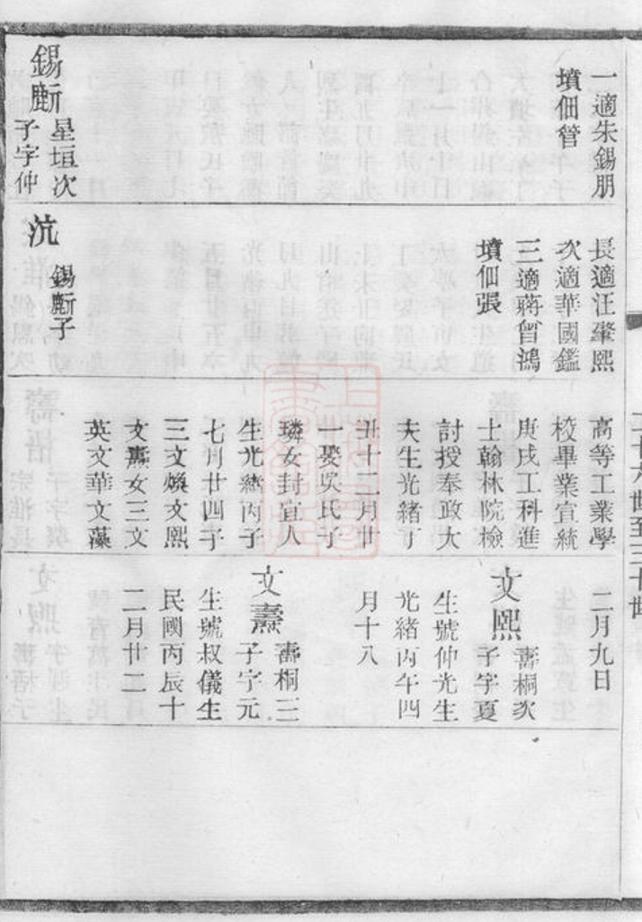 一適朱錫朋
墳佃管
錫㫁
星垣次
子字仲
長適汪肇熙
次適華國鑑
三適蔣曾鴻
墳佃張
沆
錫㫁子
高等工業學
校畢業宣統
庚戌工科進
士翰林院檢
討授奉政大
夫生光緒丁
丑十二月廿
一娶吳氏子
璘女封宜人
生光緒丙子
七月廿四子
三文煥文熙
文燾女三文
英文華文藻
二月九日
文熙
壽桐次
子字夏
生號仲光生
光緒丙午四
月十八
文燾
壽桐三
子字元
生號叔儀生
民國丙辰十
二月廿二